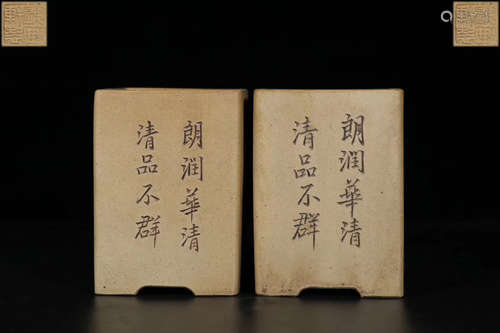 朗润華清
清品不群
朗润華清
清品不群